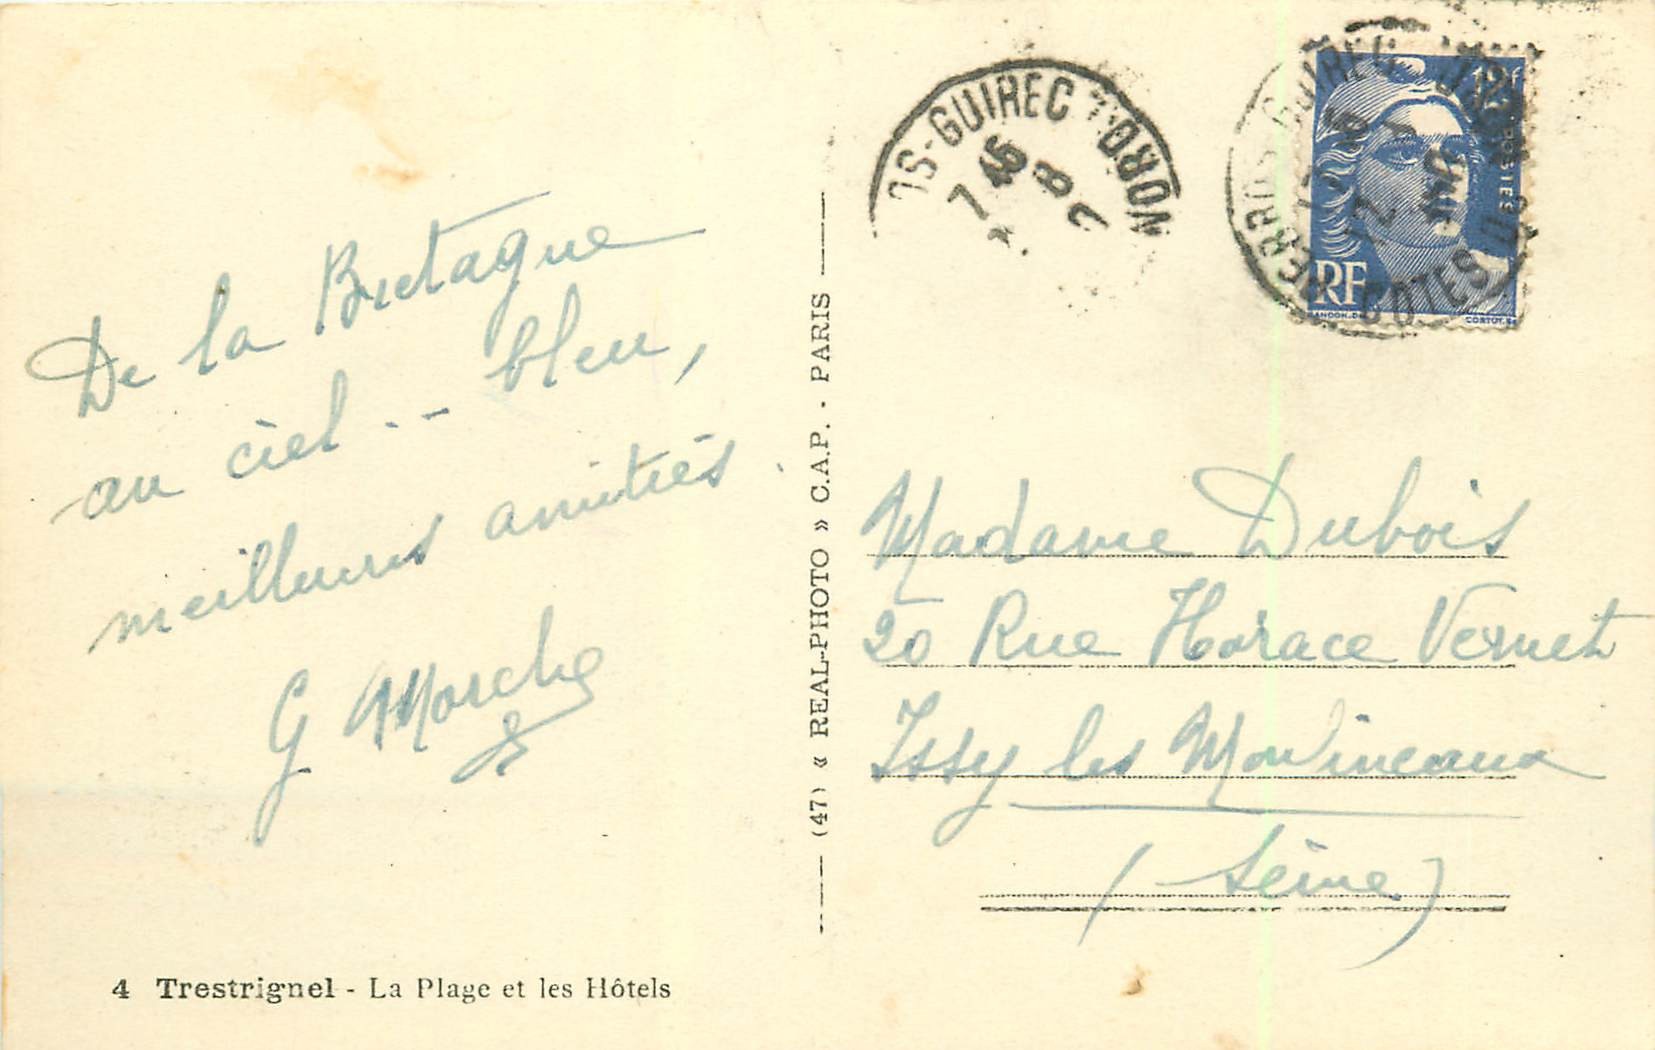 De la Bretagne
au ciel .. -- bleu,
meilleures amitiés.
G
4 Trestrignel - La Plage et les Hôtels
(47) « REAL-PHOTO » C.A.P. - PARIS
OS-GUIREC
NORD
7 45
8
GUIREC
COTES DU
12f
POSTES
RF
GANDON.DEL
CORTOT.SC
Madame Dubois
20 Rue Horace Vernet
Issy les Moulineaux
(Seine)